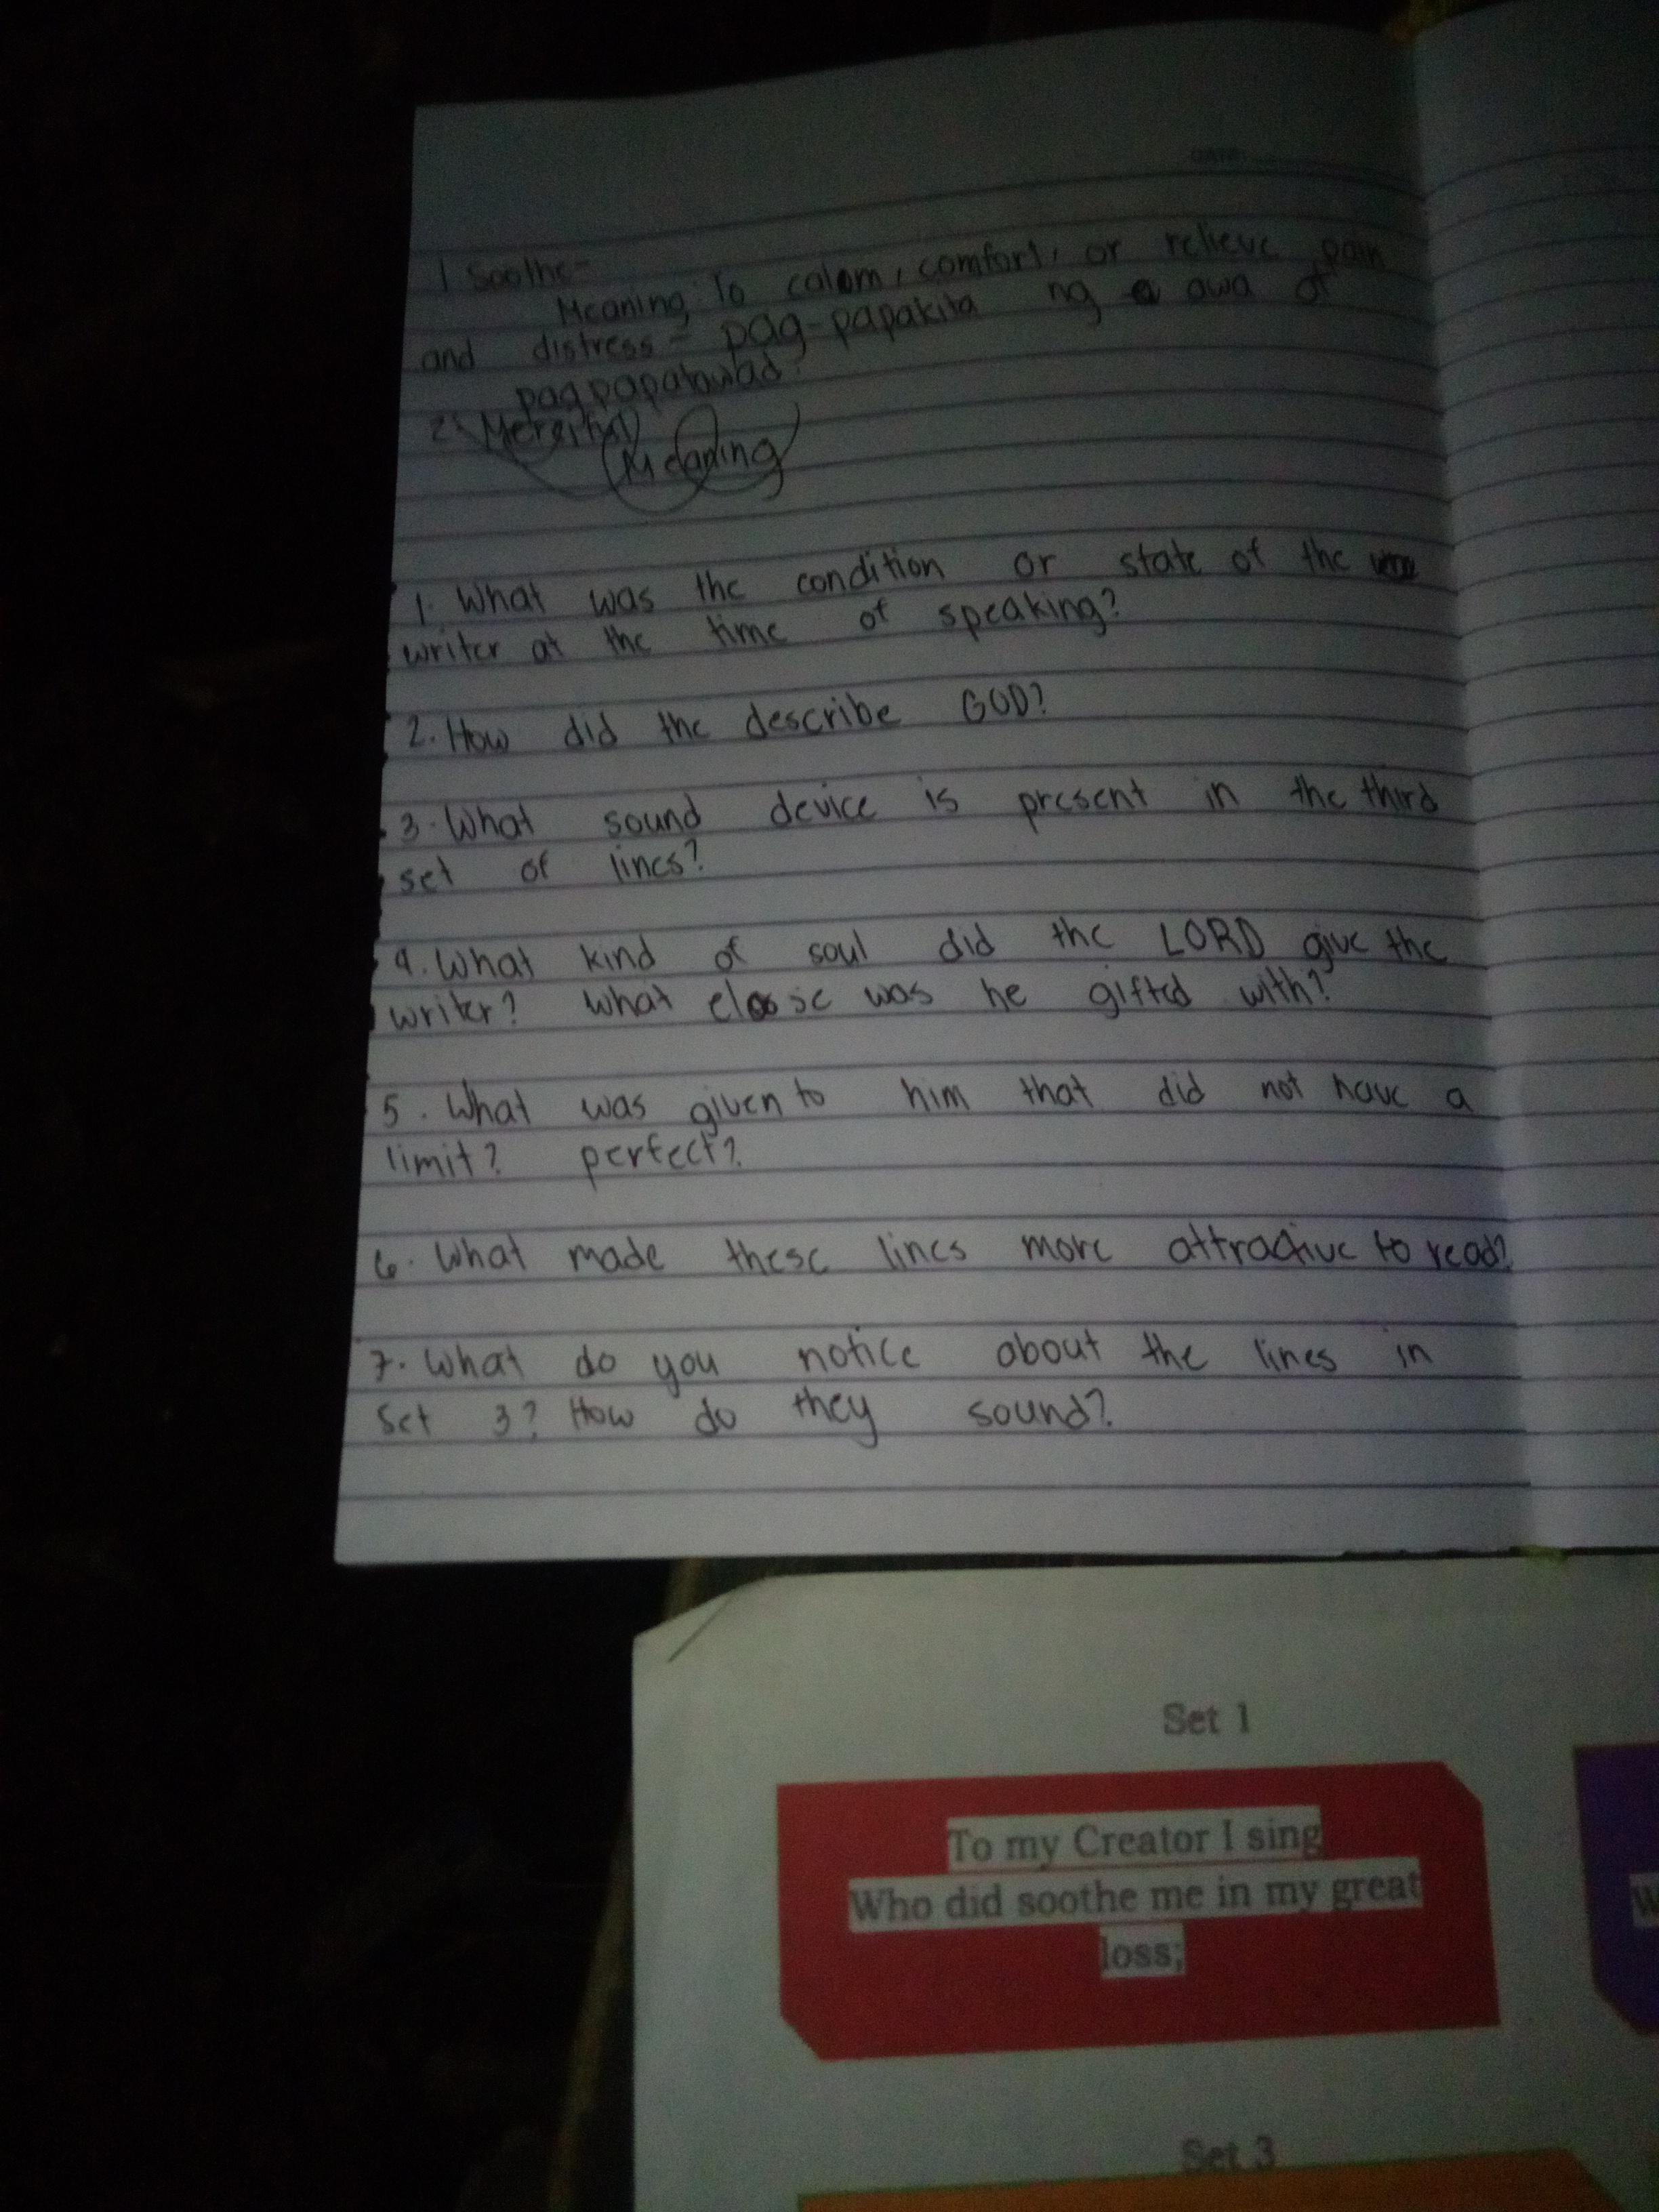 DATE:
1 Soothe-
Meaning: To calom, comfort, or relieve pain
and distress = pag-papakita ng awa at
pagpapatawad.
2. Merciful
Meaning
1. What was the condition or state of the
writer at the time of speaking?
2. How did the describe GOD?
3. What sound device is present in the third
set of lines?
4. What kind of soul did the LORD give the
writer? What else was he gifted with?
5. What was given to him that did not have a
limit? perfect?
6. What made these lines more attractive to read?
7. What do you notice about the lines in
Set 3? How do they sound?
Set 1
To my Creator I sing
Who did soothe me in my great
loss;
W
Set 3